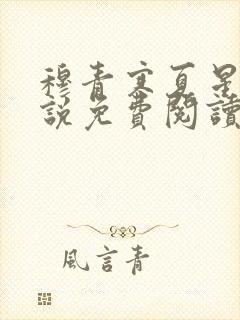 穆青寒夏星
說免費閱讀
風言青